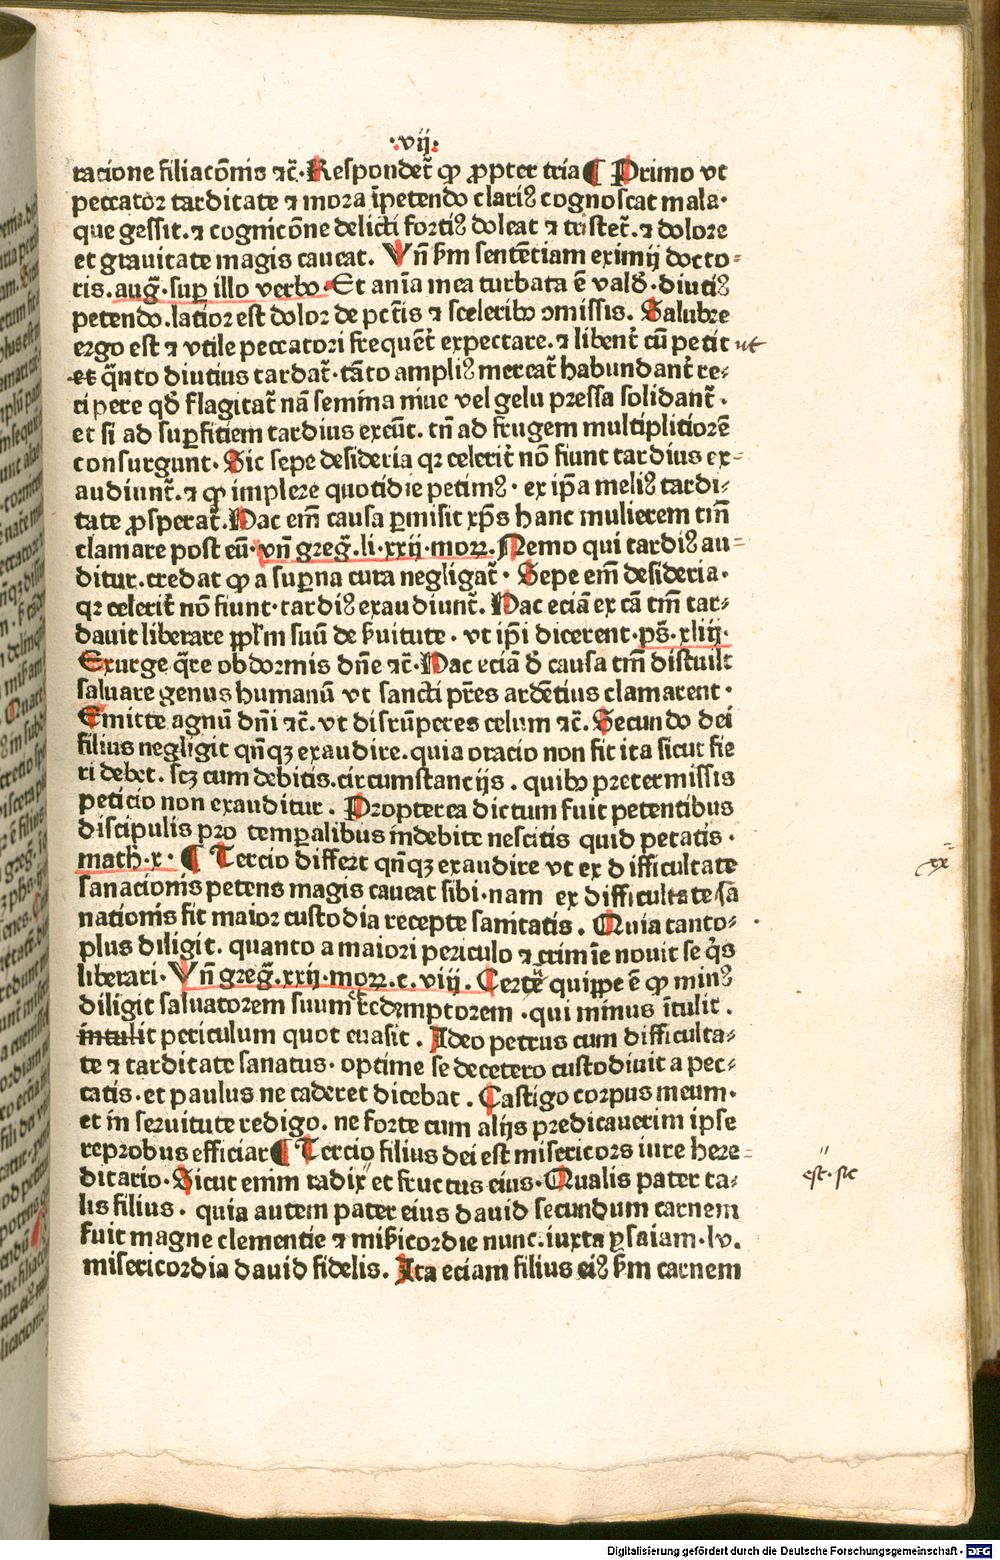 ·vij·
racione filiacõnis ⁊c̃. Respondet̃ ꝙ ꝓpter tria ¶ Primo vt
peccator tarditate ⁊ mora ĩpetendo clariꝰ cognoscat mala·
que gessit. ⁊ cognicõne delicti fortiꝰ doleat ⁊ tristet̃. ⁊ dolore
et grauitate magis caueat. Vñ ẜm sentẽtiam eximij docto⸗
ris. aug̃. suꝑ illo verbo. Et anĩa mea turbata ẽ vald̃. diutiꝰ
petendo. latior est dolor de pctĩs ⁊ sceleribꝯ ꝯmissis. Salubre
ergo est ⁊ vtile peccatori frequẽt̃ expectare. ⁊ libent̃ cũ petit ut
et q̃nto diutius tardat̃. tãto ampliꝰ mereat̃ habundant̃ re⸗
cipere qd̃ flagitat̃ nã semina niue vel gelu pressa solidant̃.
et si ad suꝑfitiem tardius exeũt. tñ ad frugem multiplitiorẽ
consurgunt. Sic sepe desideria qꝛ celerit̃ nõ fiunt tardius ex⸗
audiunt̃. ⁊ ꝙ implere quotidie petimꝰ. ex ip̃a meliꝰ tardi⸗
tate ꝓsperat̃. Hac em̃ causa ꝑmisit xp̃s hanc mulierem tm̃
clamare post eũ. vñ greg̃. li. xxij. morꝝ. Nemo qui tardiꝰ au⸗
ditur. credat ꝙ a suꝑna cura negligat̃. Sepe em̃ desideria.
qꝛ celerit̃ nõ fiunt. tardiꝰ exaudiunt̃. Hac eciã ex cã tm̃ tar⸗
dauit liberare pp̃lm suũ de ẜuitute. vt ip̃i dicerent. ps̃. xliij.
Exurge q̃re obdormis dñe ⁊c̃. Hac eciã d̃ causa tm̃ distuilt
saluare genus humanũ vt sancti pr̃es ardẽtius clamarent.
Emitte agnũ dñi ⁊c̃. vt disrũperes celum ⁊c̃. Secundo dei
filius negligit qñqꝫ exaudire. quia oracio non fit ita sicut fie
ri debet. scꝫ cum debitis. circumstancijs. quibꝯ pretermissis
peticio non exauditur. Propterea dictum fuit petentibus
discipulis pro temꝑalibus indebite nescitis quid petatis.
math̃. x. ¶ Tercio differt qñqꝫ exaudire vt ex difficultate
xx
sanacionis petens magis caueat sibi. nam ex difficultate sa
nationis fit maior custodia recepte sanitatis. Quia tanto⸗
plus diligit. quanto a maiori periculo ⁊ crimĩe nouit se q̃s
liberari. Vñ greg̃. xxij. morꝝ. c. viij. Certẽ quippe ẽ ꝙ minꝰ
diligit saluatorem suum et redemptorem. qui minus ĩtulit.
intulit periculum quot euasit. Ideo petrus cum difficulta⸗
te ⁊ tarditate sanatus. optime se decetero custodiuit a pec⸗
catis. et paulus ne caderet dicebat. Castigo corpus meum.
et in seruitute redigo. ne forte cum alijs predicauerim ipse
reprobus efficiar ¶ Tercio filius dei est misericors iure here⸗
est. sic
ditario. Sicut enim radix et fructus eius. Qualis pater ta⸗
lis filius. quia autem pater eius dauid secundum carnem
fuit magne clementie ⁊ miẜicordie nunc. iuxta ysaiam. lv.
misericordia dauid fidelis. Ita eciam filius eiꝰ ẜm carnem
Digitalisierung gefördert durch die Deutsche Forschungsgemeinschaft · DFG